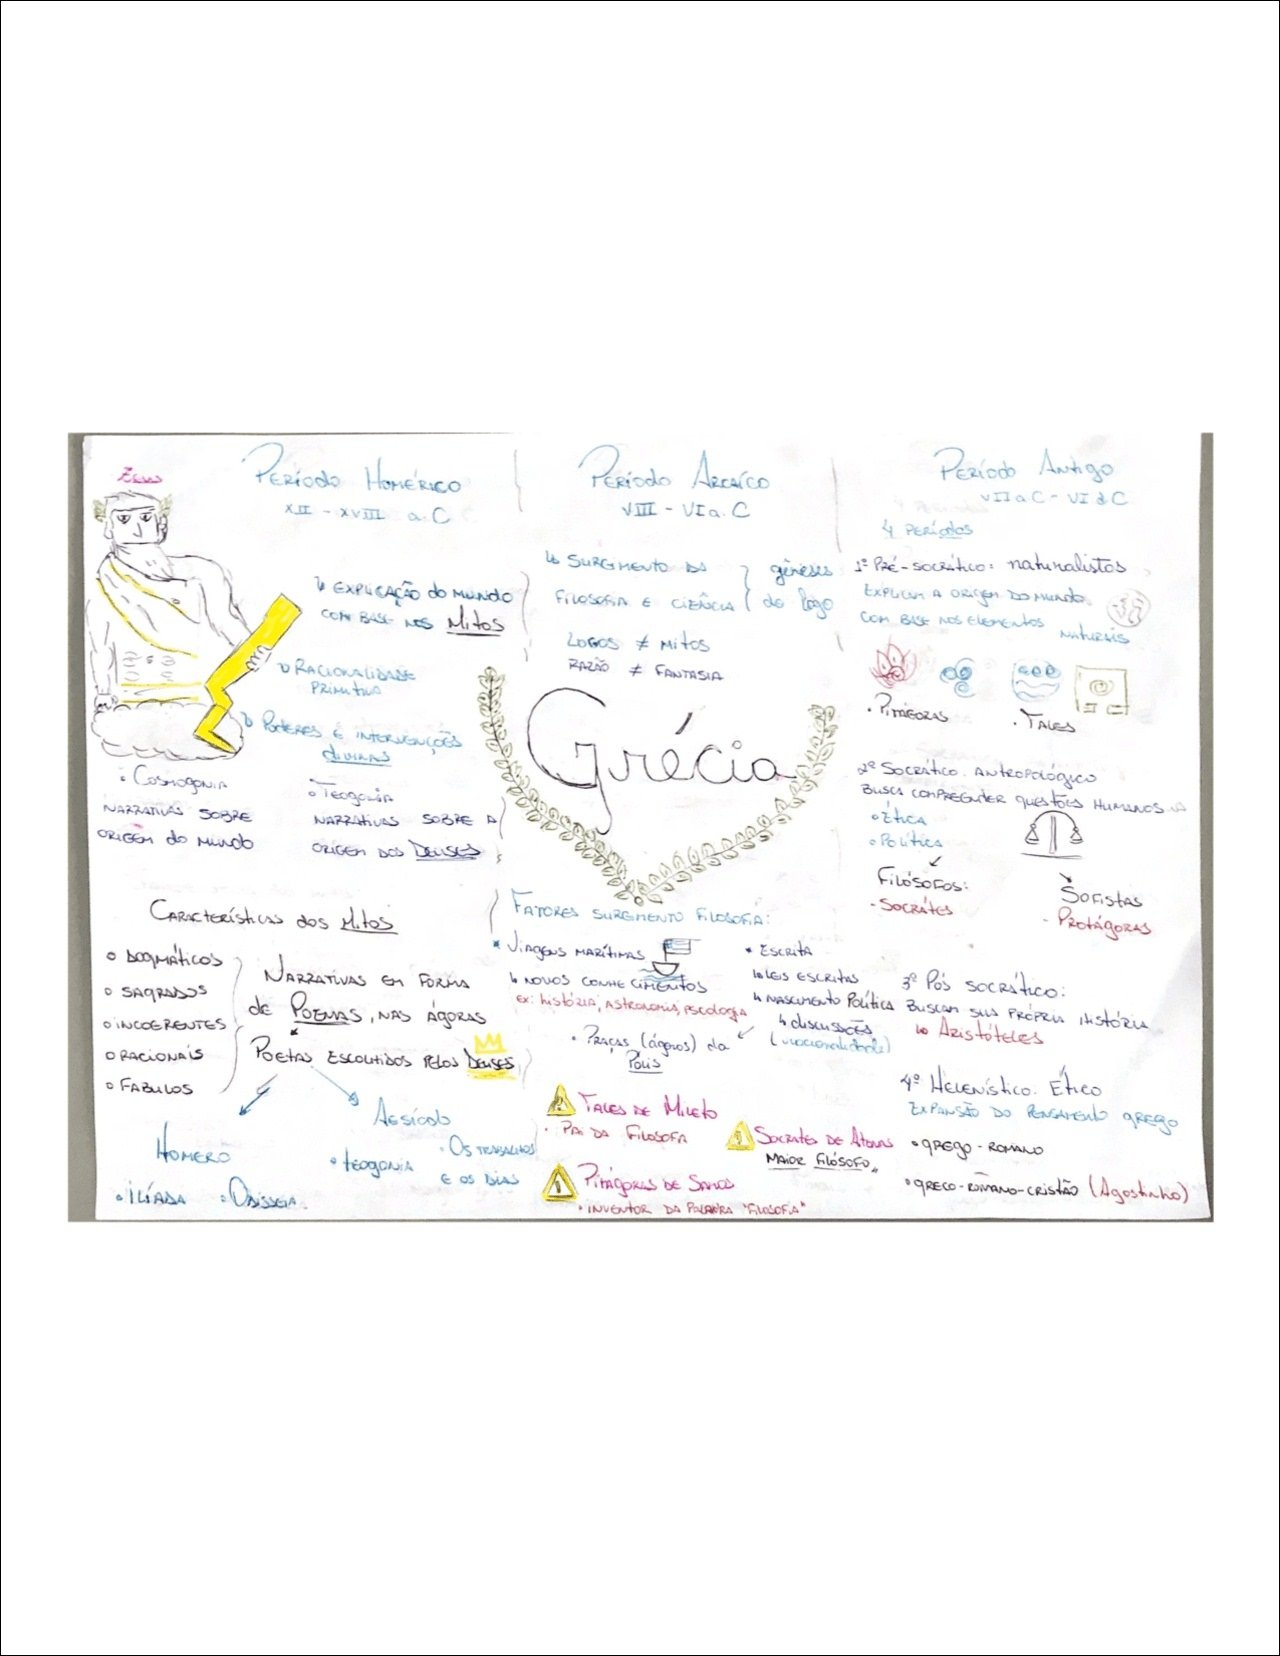 Zeus
Período Homérico
XII - XVIII a.C
↳ Explicação do mundo
com base nos Mitos
Racionalidade
primitiva
Poderes e intervenções
divinas
• Cosmogonia
narrativas sobre
origem do mundo
• Teogonia
narrativas sobre a
origem dos Deuses
Características dos Mitos
• Dogmáticos
• Sagrados
• Incoerentes
• Racionais
• Fabulos
Narrativas em forma
de Poemas, nas ágoras
Poetas escolhidos pelos Deuses
Homero
• Ilíada • Odisseia
• Teogonia
• Os trabalhos
e os dias
Período Arcaico
VIII - VI a.C
↳ Surgimento da
filosofia e ciência
gêneses
do logo
Logos ≠ Mitos
Razão ≠ Fantasia
Grécia
Fatores surgimento filosofia:
* Viagens marítimas
↳ novos conhecimentos
ex: história, astronomia, psicologia
• Praças (ágoras) da
Pólis
* Escrita
↳ leis escritas
↳ nascimento Política
↳ discussões
Tales de Mileto
• Pai da Filosofia
Sócrates de Atenas
Maior filósofo
Pitágoras de Samos
• inventor da palavra "filosofia"
Período Antigo
VII a.C - VI d.C
4 períodos
1º Pré-socrático: naturalistas
Explicam a origem do mundo
com base nos elementos naturais
• Pitágoras
• Tales
2º Socrático: antropológico
busca compreender questões humanas
• Ética
• Política
Filósofos:
- Sócrates
Sofistas
- Protágoras
3º Pós socrático:
Buscam sua própria história
↳ Aristóteles
4º Helenístico. Ético
Expansão do pensamento grego
• grego-romano
• greco-romano-cristão (Agostinho)